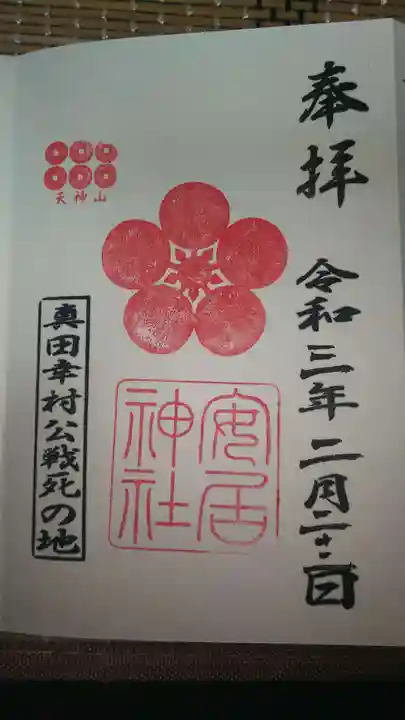 奉拝 令和三年二月二十二日
安居
神社
天神山
真田幸村公戦死の地